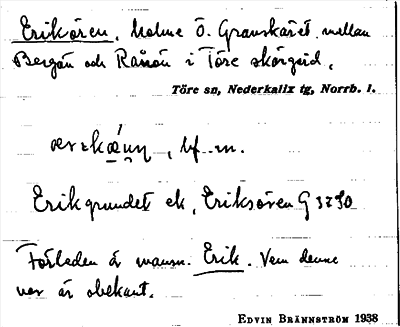 Erikören, holme Ö. Granskäret mellan
Bergön och Rånön i Töre skärgård.
Töre sn, Nederkalix tg, Norrb. l.
bf. m.
Erikgrundet ek, Eriksören G 3290
Förleden är mansn. Erik. Vem denne
var är obekant.
EDVIN BRÄNNSTRÖM 1938